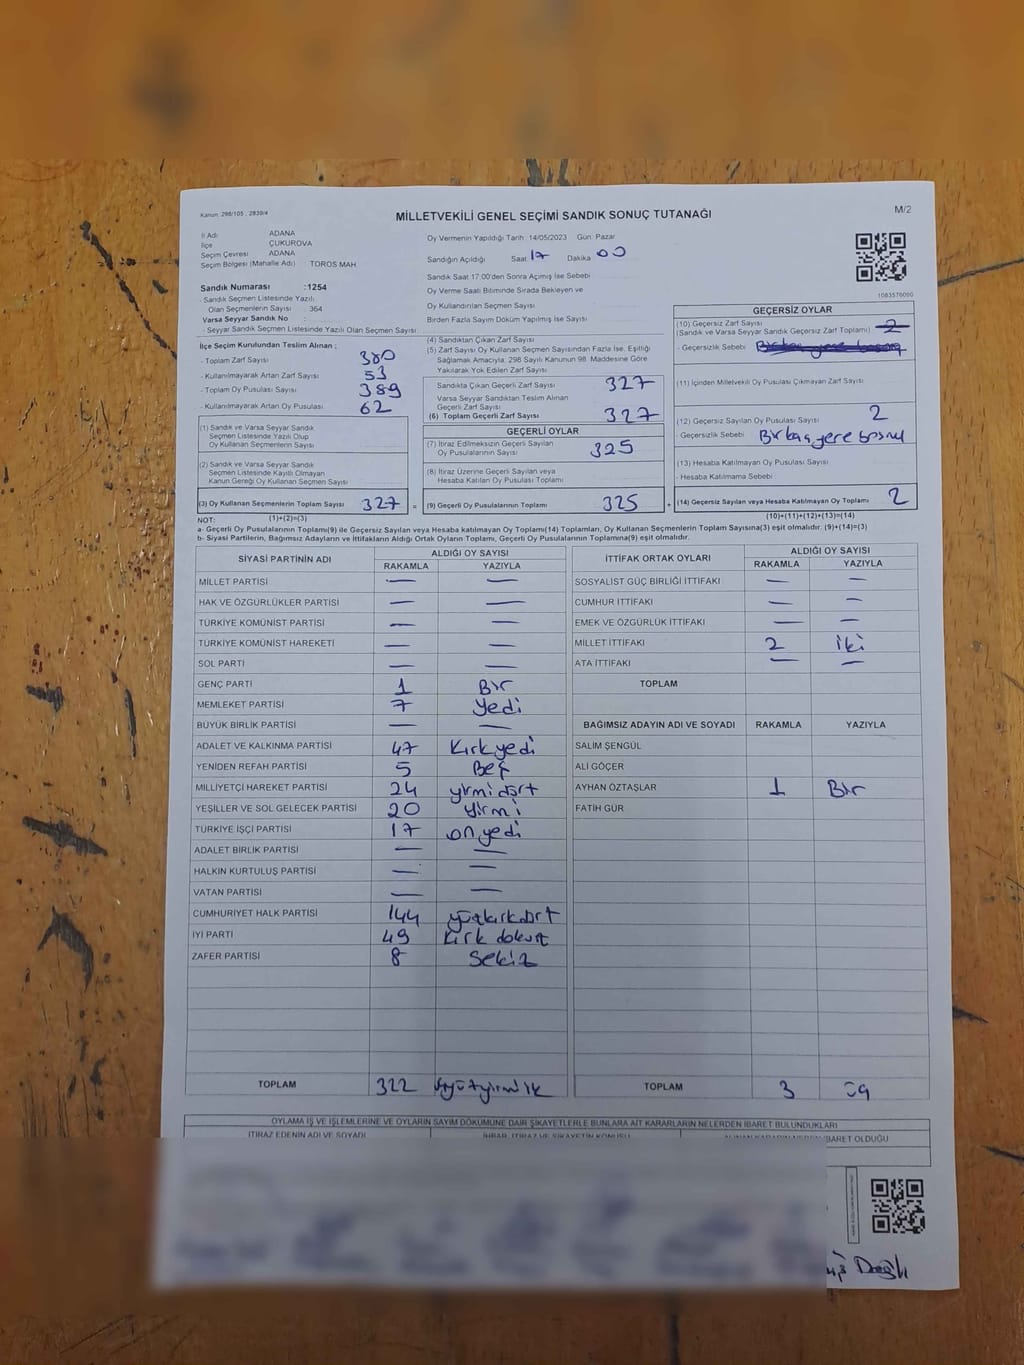 Kanun: 298/105 , 2839/4
MİLLETVEKİLİ GENEL SEÇİMİ SANDIK SONUÇ TUTANAĞI
M/2
İl Adı ADANA
İlçe ÇUKUROVA
Seçim Çevresi ADANA
Seçim Bölgesi (Mahalle Adı) : TOROS MAH.
Sandık Numarası :1254
- Sandık Seçmen Listesinde Yazılı
Olan Seçmenlerin Sayısı 364
Varsa Seyyar Sandık No :
- Seyyar Sandık Seçmen Listesinde Yazılı Olan Seçmen Sayısı :
Oy Vermenin Yapıldığı Tarih :14/05/2023 Gün: Pazar
Sandığın Açıldığı Saat 17 Dakika 00
Sandık Saat 17:00'den Sonra Açılmış İse Sebebi
Oy Verme Saati Bitiminde Sırada Bekleyen ve
Oy Kullandırılan Seçmen Sayısı
Birden Fazla Sayım Döküm Yapılmış İse Sayısı
1083576090
İlçe Seçim Kurulundan Teslim Alınan :
- Toplam Zarf Sayısı 380
- Kullanılmayarak Artan Zarf Sayısı 53
- Toplam Oy Pusulası Sayısı 389
- Kullanılmayarak Artan Oy Pusulası 62
(1) Sandık ve Varsa Seyyar Sandık
Seçmen Listesinde Yazılı Olup
Oy Kullanan Seçmenlerin Sayısı
(2) Sandık ve Varsa Seyyar Sandık
Seçmen Listesinde Kayıtlı Olmayan
Kanun Gereği Oy Kullanan Seçmen Sayısı
(3) Oy Kullanan Seçmenlerin Toplam Sayısı 327 =
(1)+(2)=(3)
(4) Sandıktan Çıkan Zarf Sayısı
(5) Zarf Sayısı Oy Kullanan Seçmen Sayısından Fazla İse, Eşitliği
Sağlamak Amacıyla, 298 Sayılı Kanunun 98. Maddesine Göre
Yakılarak Yok Edilen Zarf Sayısı
Sandıkta Çıkan Geçerli Zarf Sayısı 327
Varsa Seyyar Sandıktan Teslim Alınan
Geçerli Zarf Sayısı
(6) Toplam Geçerli Zarf Sayısı 327
GEÇERLİ OYLAR
(7) İtiraz Edilmeksizin Geçerli Sayılan
Oy Pusulalarının Sayısı 325
(8) İtiraz Üzerine Geçerli Sayılan veya
Hesaba Katılan Oy Pusulası Toplamı
(9) Geçerli Oy Pusulalarının Toplamı 325 +
GEÇERSİZ OYLAR
(10) Geçersiz Zarf Sayısı
(Sandık ve Varsa Seyyar Sandık Geçersiz Zarf Toplamı) 2
- Geçersizlik Sebebi
(11) İçinden Milletvekili Oy Pusulası Çıkmayan Zarf Sayısı
(12) Geçersiz Sayılan Oy Pusulası Sayısı 2
- Geçersizlik Sebebi Birbaş yere basmul
(13) Hesaba Katılmayan Oy Pusulası Sayısı
- Hesaba Katılmama Sebebi
(14) Geçersiz Sayılan veya Hesaba Katılmayan Oy Toplamı 2
(10)+(11)+(12)+(13)=(14)
NOT:
a- Geçerli Oy Pusulalarının Toplamı(9) ile Geçersiz Sayılan veya Hesaba katılmayan Oy Toplamı(14) Toplamları, Oy Kullanan Seçmenlerin Toplam Sayısına(3) eşit olmalıdır. (9)+(14)=(3)
b- Siyasi Partilerin, Bağımsız Adayların ve İttifakların Aldığı Ortak Oyların Toplamı, Geçerli Oy Pusulalarının Toplamına(9) eşit olmalıdır.
SİYASİ PARTİNİN ADI ALDIĞI OY SAYISI
RAKAMLA YAZIYLA
MİLLET PARTİSİ — —
HAK VE ÖZGÜRLÜKLER PARTİSİ — —
TÜRKİYE KOMÜNİST PARTİSİ — —
TÜRKİYE KOMÜNİST HAREKETİ — —
SOL PARTİ — —
GENÇ PARTİ 1 Bir
MEMLEKET PARTİSİ 7 Yedi
BÜYÜK BİRLİK PARTİSİ — —
ADALET VE KALKINMA PARTİSİ 47 Kırkyedi
YENİDEN REFAH PARTİSİ 5 Beş
MİLLİYETÇİ HAREKET PARTİSİ 24 yirmidört
YEŞİLLER VE SOL GELECEK PARTİSİ 20 Yirmi
TÜRKİYE İŞÇİ PARTİSİ 17 onyedi
ADALET BİRLİK PARTİSİ — —
HALKIN KURTULUŞ PARTİSİ — —
VATAN PARTİSİ — —
CUMHURİYET HALK PARTİSİ 144 yüzkırkdört
İYİ PARTİ 49 Kırk dokuz
ZAFER PARTİSİ 8 Sekiz
TOPLAM 322 üçyüzyirmiik
İTTİFAK ORTAK OYLARI ALDIĞI OY SAYISI
RAKAMLA YAZIYLA
SOSYALİST GÜÇ BİRLİĞİ İTTİFAKI — —
CUMHUR İTTİFAKI — —
EMEK VE ÖZGÜRLÜK İTTİFAKI — —
MİLLET İTTİFAKI 2 iki
ATA İTTİFAKI — —
TOPLAM
BAĞIMSIZ ADAYIN ADI VE SOYADI RAKAMLA YAZIYLA
SALİM ŞENGÜL
ALİ GÖÇER
AYHAN ÖZTAŞLAR 1 Bir
FATİH GÜR
TOPLAM 3 üç
OYLAMA İŞ VE İŞLEMLERİNE VE OYLARIN SAYIM DÖKÜMÜNE DAİR ŞİKAYETLERLE BUNLARA AİT KARARLARIN NELERDEN İBARET BULUNDUKLARI
İTİRAZ EDENİN ADI VE SOYADI İHBAR, İTİRAZ VE ŞİKAYETİN KONUSU ALINAN KARARIN NEDEN İBARET OLDUĞU